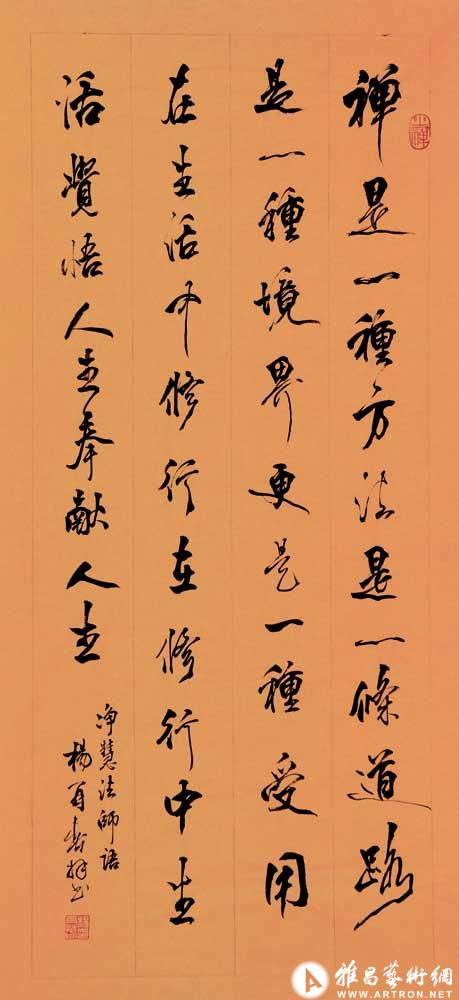 禅是一種方法是一條道路
是一種境界更是一種受用
在生活中修行在修行中生
活覺悟人生奉献人生
净慧法師語
楊再春拜书
雅昌藝術網
WWW.ARTRON.NET